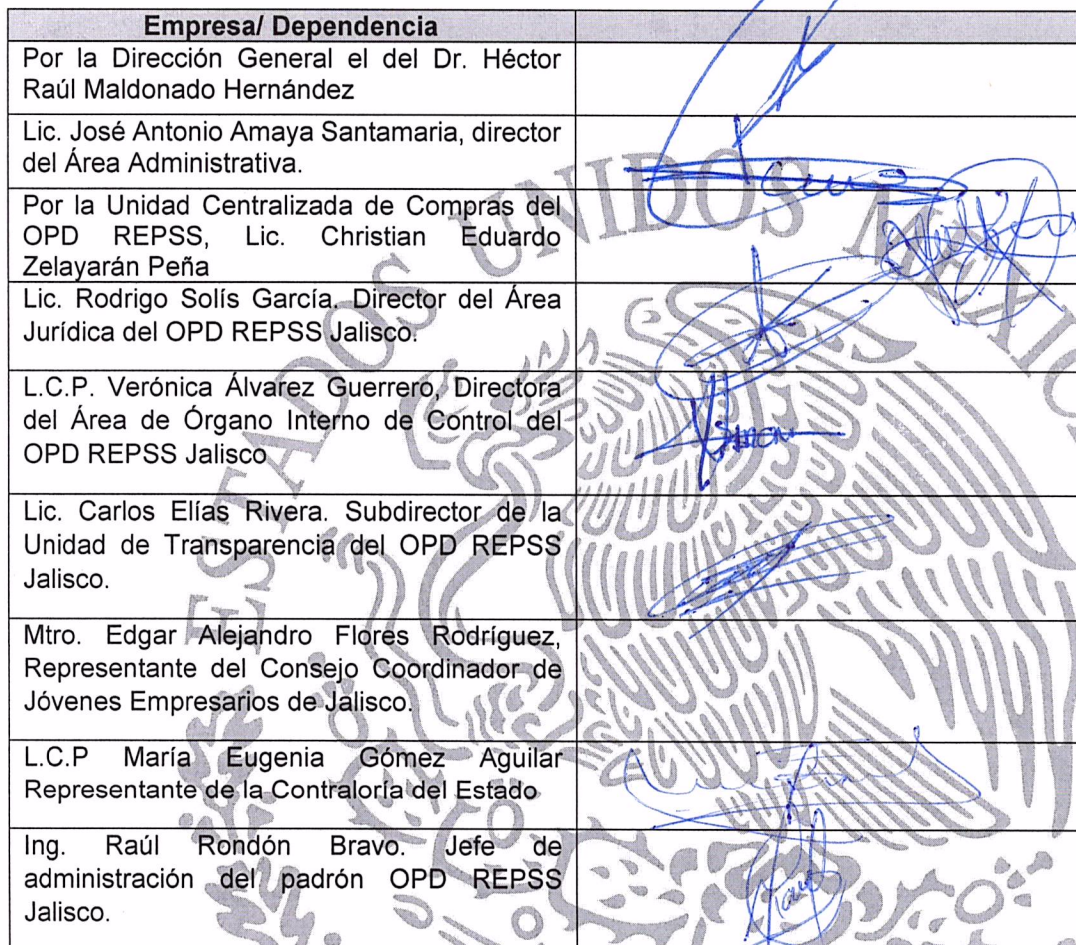 Empresa/ Dependencia
Por la Dirección General el del Dr. Héctor
Raúl Maldonado Hernández
Lic. José Antonio Amaya Santamaria, director
del Área Administrativa.
Por la Unidad Centralizada de Compras del
OPD REPSS, Lic. Christian Eduardo
Zelayarán Peña
Lic. Rodrigo Solís García. Director del Área
Jurídica del OPD REPSS Jalisco.
L.C.P. Verónica Álvarez Guerrero, Directora
del Área de Órgano Interno de Control del
OPD REPSS Jalisco
Lic. Carlos Elías Rivera. Subdirector de la
Unidad de Transparencia del OPD REPSS
Jalisco.
Mtro. Edgar Alejandro Flores Rodríguez,
Representante del Consejo Coordinador de
Jóvenes Empresarios de Jalisco.
L.C.P María Eugenia Gómez Aguilar
Representante de la Contraloría del Estado
Ing. Raúl Rondón Bravo. Jefe de
administración del padrón OPD REPSS
Jalisco.
ESTADOS UNIDOS MEXIC